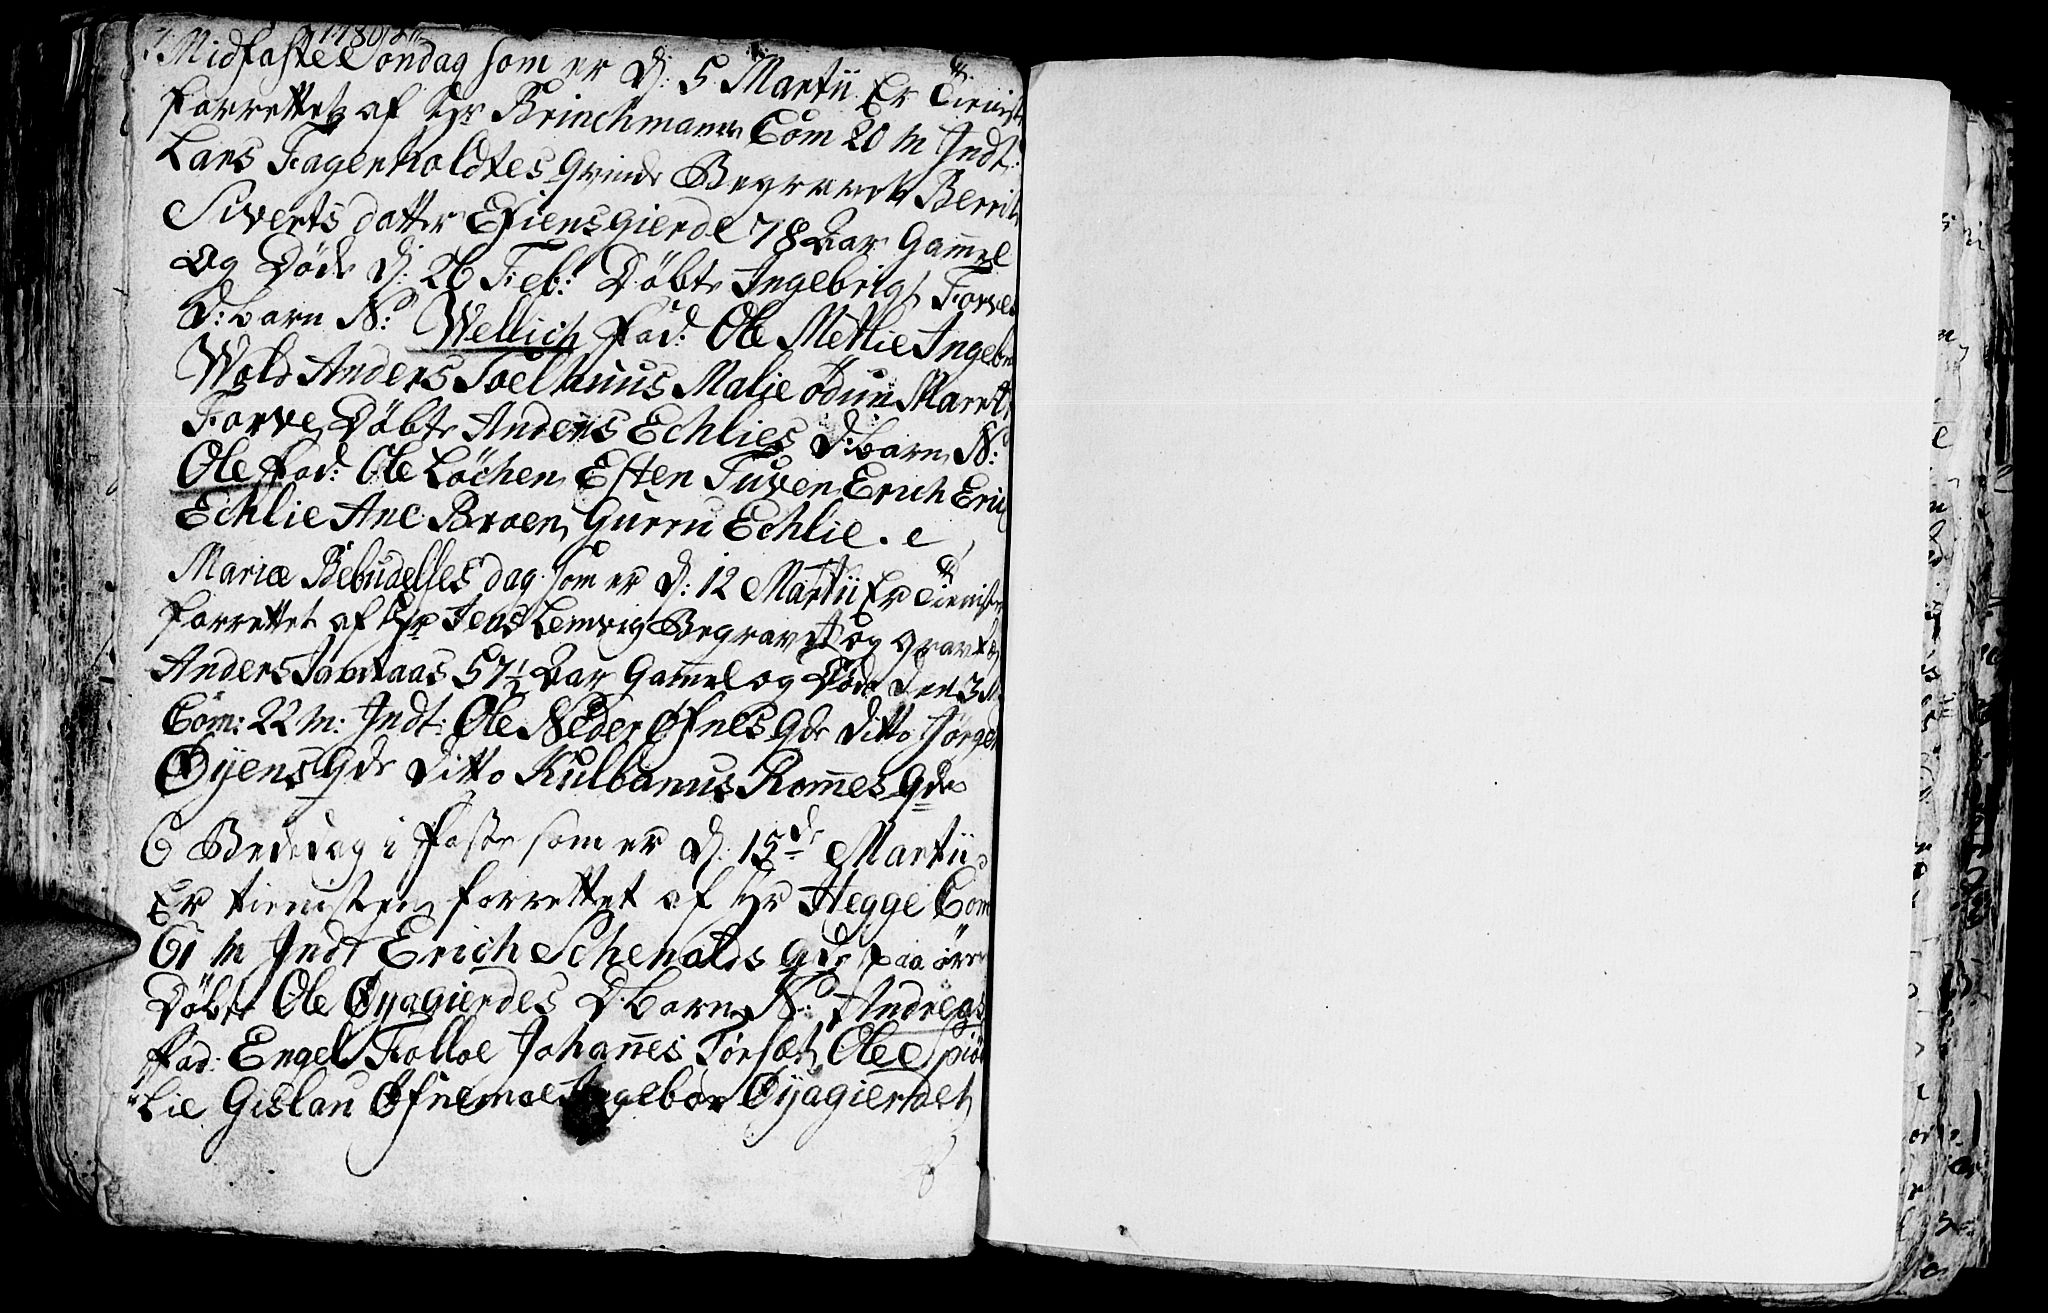 1780
Midfaste Søndag som er D: 5 Martii Er Tienist
forrettet af Hr Brinchmann Com 20 m Indt:
Lars Fagerholdtes Qvinde Begravet Berrit
Siverts datter Efiensgierde 78 Aar Gamel
og Døde D: 26 Feb: Døbt Ingebrigt Forve
D:barn N: Wellich Fad: Ole Metlie Ingebr
Wold Anders Soelhuus Malie ødun Marrit
Forve Døbt Anders Echlies D:barn N:
Ole Fad: Ole Løchen Esten Tuven Erich Eric
Echlie Ane Broen Gurru Echlie
Mariæ Bebudelses dag som er D: 12 Martii Er Tieniste
forrettet af Hr Jens Lemvig Begravet og
Anders 57½ Aar Gamel og Døde Den 3
Com: 22 m: Indt: Ole Neder Øfnes Qde Ditto Jørgen
Øyens Qde Ditto Kulbanus Romes Qde
6 Bededag i Faste som er D: 15de Martii
Er tienisten forrettet af Hr Hegge Com
61 m Indt Erich Schenalds Qde paa
Døbt Ole Øyagierdes D:barn N: Andreas
Fad: Engel Folloe Johannes Tørset Ole
Lie Gislau Øfnemoe Ingebor Øyagierdet